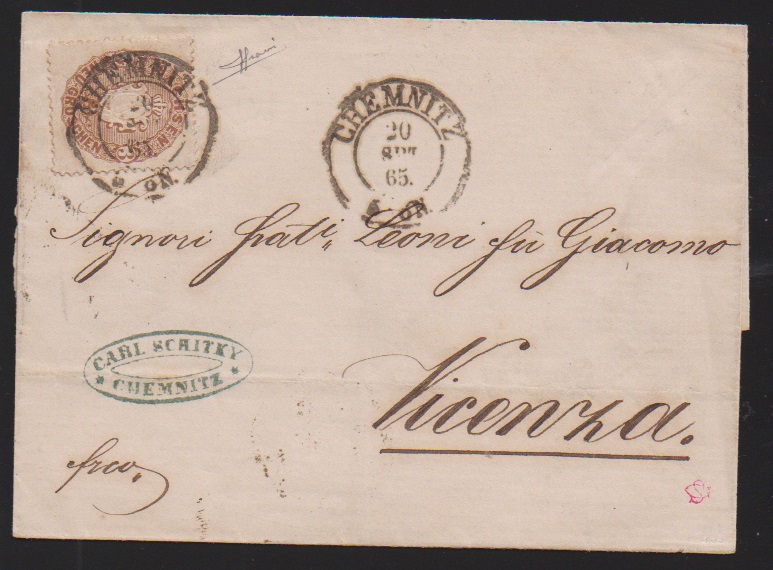 CHEMNITZ
20
65.
ON.
CHEMNITZ
20
SPT
65.
ON.
Signori frat.ⁱⁱ Leoni fù Giacomo
CARL SCHITKY
* CHEMNITZ *
Vicenza.
frco